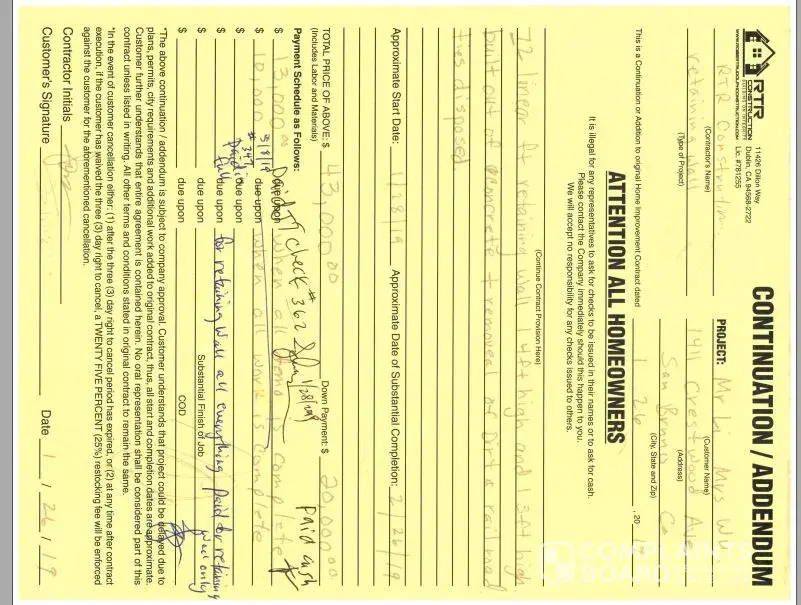 CONTINUATION / ADDENDUM
RTR
CONSTRUCTION
WWW.ROBERTRUDOLPHCONSTRUCTION.COM
11426 Dillon Way
Dublin, CA 94568-2722
Lic #781255
RTR Construction
(Contractor's Name)
retaining wall
(Type of Project)
PROJECT: Mr Mrs
(Customer Name)
141 Crestwood
(Address)
San Bruno
(City, State and Zip)
This is a Continuation or Addition to original Home Improvement Contract dated 1 26 , 20
ATTENTION ALL HOMEOWNERS
It is illegal for any representatives to ask for checks to be issued in their names or to ask for cash.
Please contact the Company immediately should this happen to you.
We will accept no responsibility for any checks issued to others.
(Continue Contract Provision Here)
72 linear ft retaining wall 4ft high and 3ft high
built out concrete removed dirt
disposed
Approximate Start Date: 19 Approximate Date of Substantial Completion: 2/26/19
TOTAL PRICE OF ABOVE: $ 43,000.00 Down Payment: $ 20,000.00
(Includes Labor and Materials)
Payment Schedule as Follows:
$ 13,000.00 due upon when all demo is complete
Paid check #362 1/28/19
Paid cash
$ 10,000.00 due upon when all work is complete
3/8/19
#347
Paid in full
$ due upon
$ due upon for retaining wall all everything Paid for retaining wall only
Substantial Finish of Job
$ due upon COD
*The above continuation / addendum is subject to company approval. Customer understands that project could be delayed due to
plans, permits, city requirements and additional work added to original contract, thus, all start and completion dates are approximate.
Customer further understands that entire agreement is contained herein. No oral representation shall be considered part of this
contract unless listed in writing. All other terms and conditions stated in original contract to remain the same.
*In the event of customer cancellation either: (1) after the three (3) day right to cancel period has expired, or (2) at any time after contract
execution, if the customer has waived the three (3) day right to cancel, a TWENTY FIVE PERCENT (25%) restocking fee will be enforced
against the customer for the aforementioned cancellation.
Contractor Initials
Customer's Signature Date 1 / 26 / 19
COMPLAINTS
BOARD